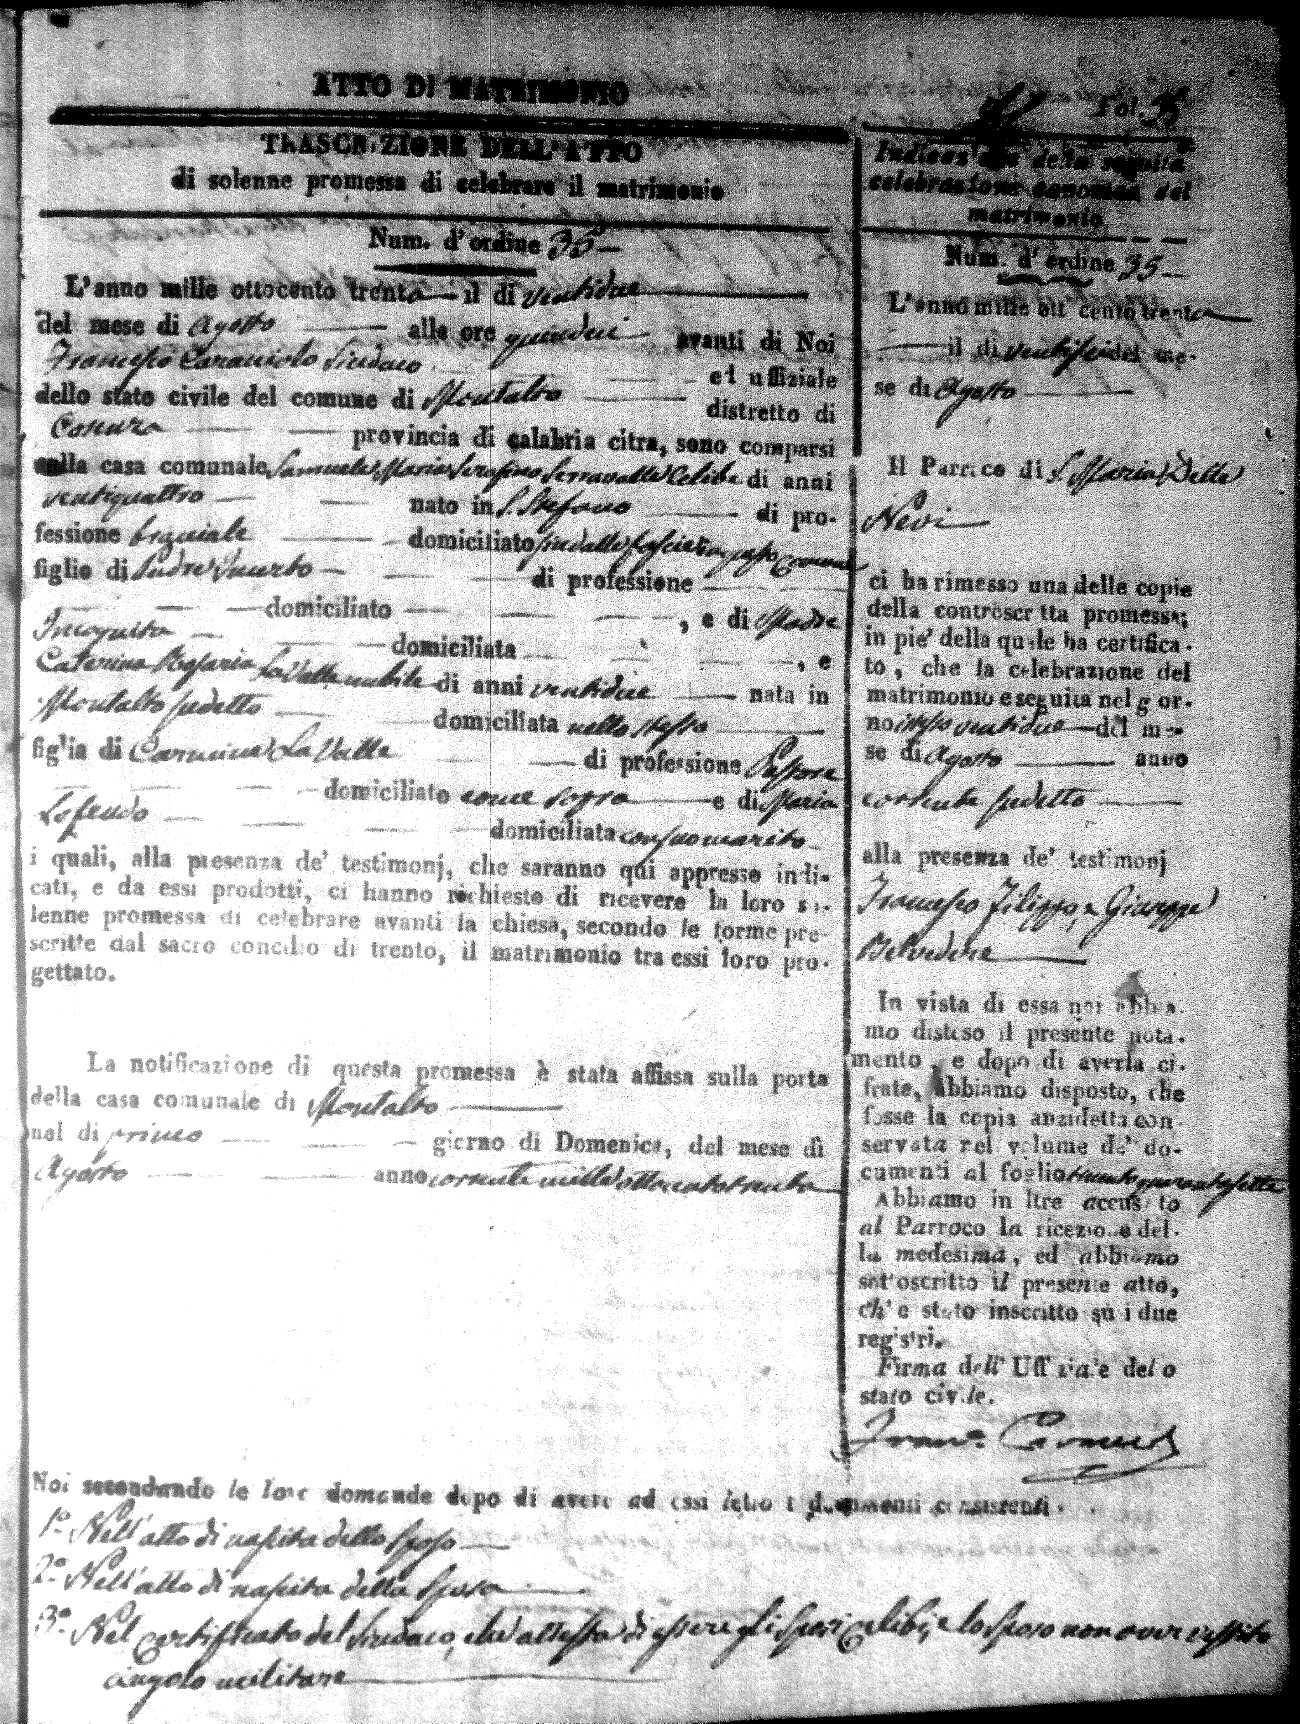 ATTO DI MATRIMONIO
Fol. 35
TRASCRIZIONE DELL'ATTO
di solenne promessa di celebrare il matrimonio
Num. d'ordine 35
L'anno mille ottocento trenta il di ventidue
del mese di Agosto alle ore quindici avanti di Noi
Francesco Caracciolo Sindaco ed uffiziale
dello stato civile del comune di Montalto distretto di
Cosenza provincia di calabria citra, sono comparsi
nella casa comunale Samuele Maria Serafino Serravalle Celibe di anni
ventiquattro nato in S. Stefano di pro-
fessione braciale domiciliato sin dalle fascie in questo comune
figlio di Padre Incerto di professione
domiciliato , e di Madre
Incognita domiciliata , e
Caterina Rosaria La Valle nubile di anni ventidue nata in
Montalto sudetto domiciliata nello stesso
figlia di Carmine La Valle di professione
domiciliato come sopra e di Maria
Lofeudo domiciliata con suo marito
i quali, alla presenza de' testimonj, che saranno qui appresso indi-
cati, e da essi prodotti, ci hanno richiesto di ricevere la loro so-
lenne promessa di celebrare avanti la chiesa, secondo le forme pre-
scritte dal sacro concilio di trento, il matrimonio tra essi loro pro-
gettato.
La notificazione di questa promessa è stata affissa sulla porta
della casa comunale di Montalto
nel di primo giorno di Domenica, del mese di
Agosto anno corrente mille ottocento trenta
Indicazione della seguita
celebrazione canonica del
matrimonio
Num. d'ordine 35
L'anno mille ott cento trenta
il di ventisei del me-
se di Agosto
Il Parroco di S. Maria Delle
Nevi
ci ha rimesso una delle copie
della controscritta promessa;
in pie' della quale ha certifica-
to, che la celebrazione del
matrimonio e seguita nel gior-
no istesso ventidue del me-
se di Agosto anno
corrente sudetto
alla presenza de' testimonj
Francesco Filippo, e Giuseppe
Belvedere
In vista di essa noi abbia-
mo disteso il presente nota-
mento, e dopo di averla ci-
frate, abbiamo disposto, che
fosse la copia anzidetta con-
servata nel volume de' do-
cumenti al foglio
Abbiamo in ltre accusato
al Parroco la ricezione del-
la medesima, ed abbiamo
sottoscritto il presente atto,
ch'e stato inscritto sù i due
registri.
Firma dell'Uffiziale dello
stato civile.
Noi secondando le loro domande dopo di avere ad essi letto i documenti consistenti
1º Nell'atto di nascita dello sposo
2º Nell'atto di nascita della sposa
3º Nel certificato del Sindaco, che attesta di essere gli sposi celibi, e lo sposo non aver vestito
cingolo militare